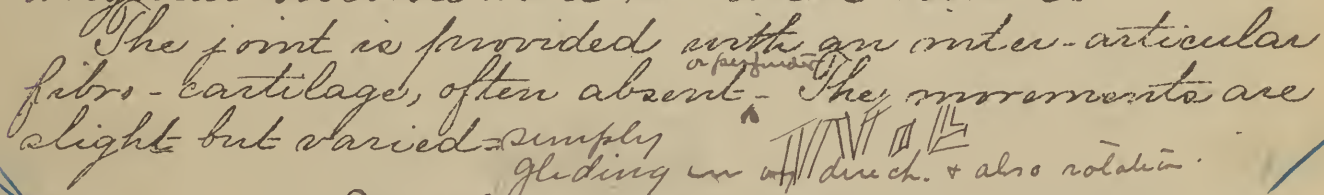 The joint is provided with an inter-articular
or perforated
fibro-cartilage, often absent. The movements are
slight but varied = simply
gliding in all direch. + also rotation.